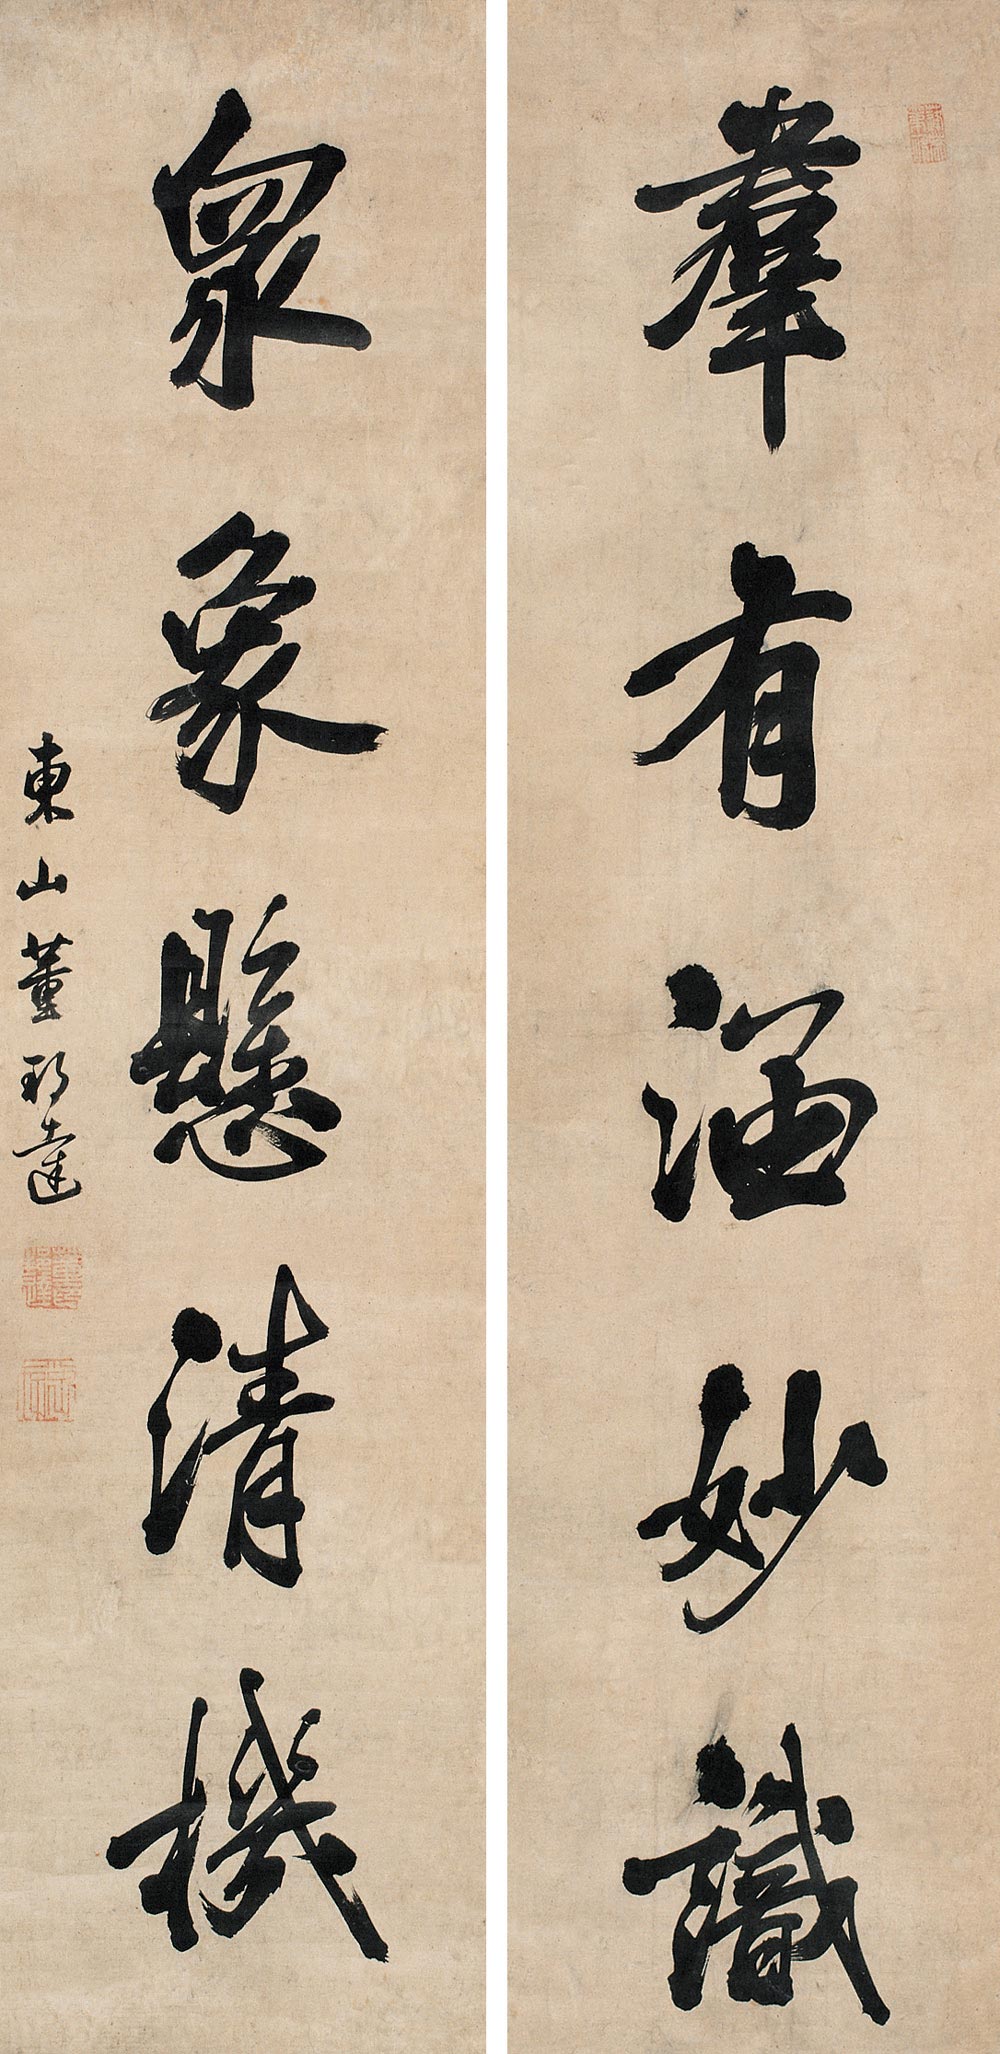 羣有涵妙識
眾象懸清機
東山董邦達